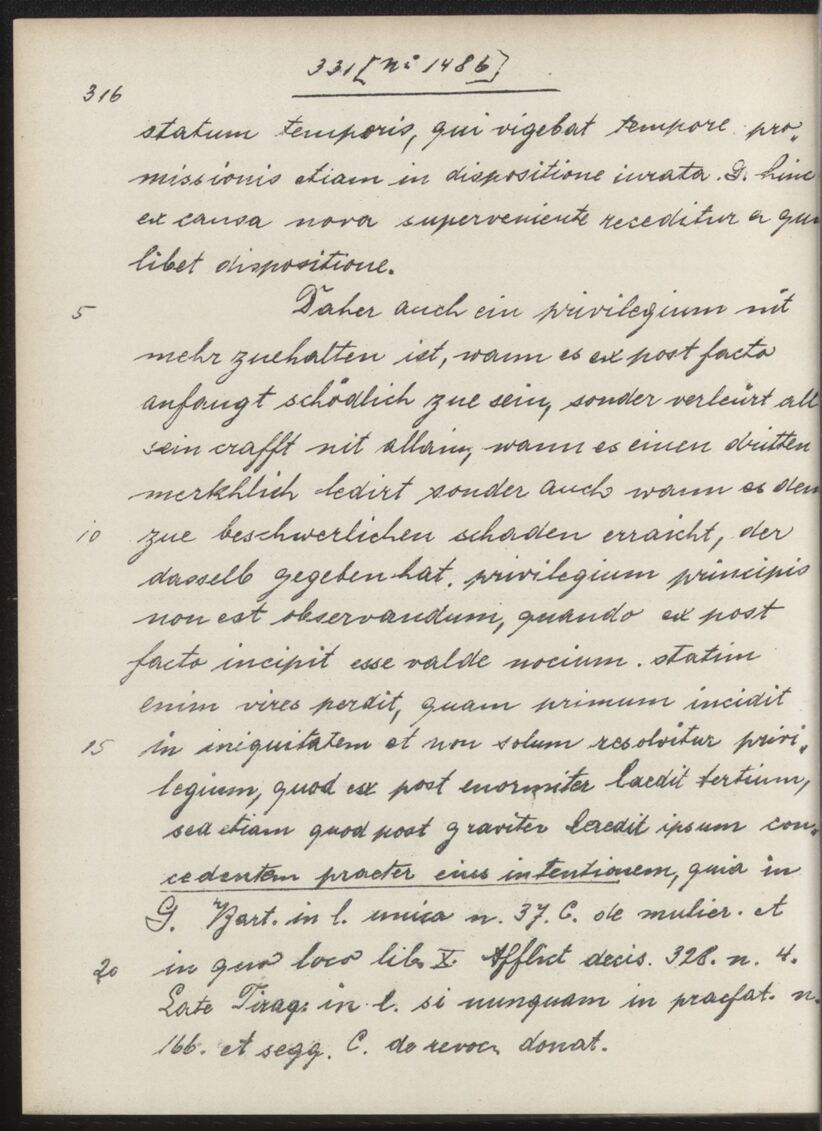 331 [Nr 1486]
316
statum temporis, qui vigebat tempore pro„
missionis etiam in dispositione iurata. G. hinc
ex causa nova superveniente receditur a qu
libet dispositione.
5 Daher auch ein privilegium nit
mehr zuehalten ist, wann es ex post facto
anfangt schödlich zue sein, sonder verleürt all
sein crafft nit allain, wann es einen dritten
merkhlich ledirt sonder auch wann es dem
10 zue beschwerlichen schaden erraicht, der
dasselb gegeben hat. privilegium principis
non est observandum, quando ex post
facto incipit esse valde nocium. statim
enim vires perdit, quam primum incidit
15 in iniquitatem et non solum resolvitur privi„
legium, quod ex post enormiter laedit tertium,
sed etiam quod post graviter laedit ipsum con„
cedentem praeter eius intentionem, quia in
G. Bart. in l. unica n. 37. C. de mulier. et
20 in quo loco lib. X. Afflict decis. 328. n. 4.
Late Tiraq. in l. si nunquam in praefat. n.
166. et segg. C. de revoc. donat.